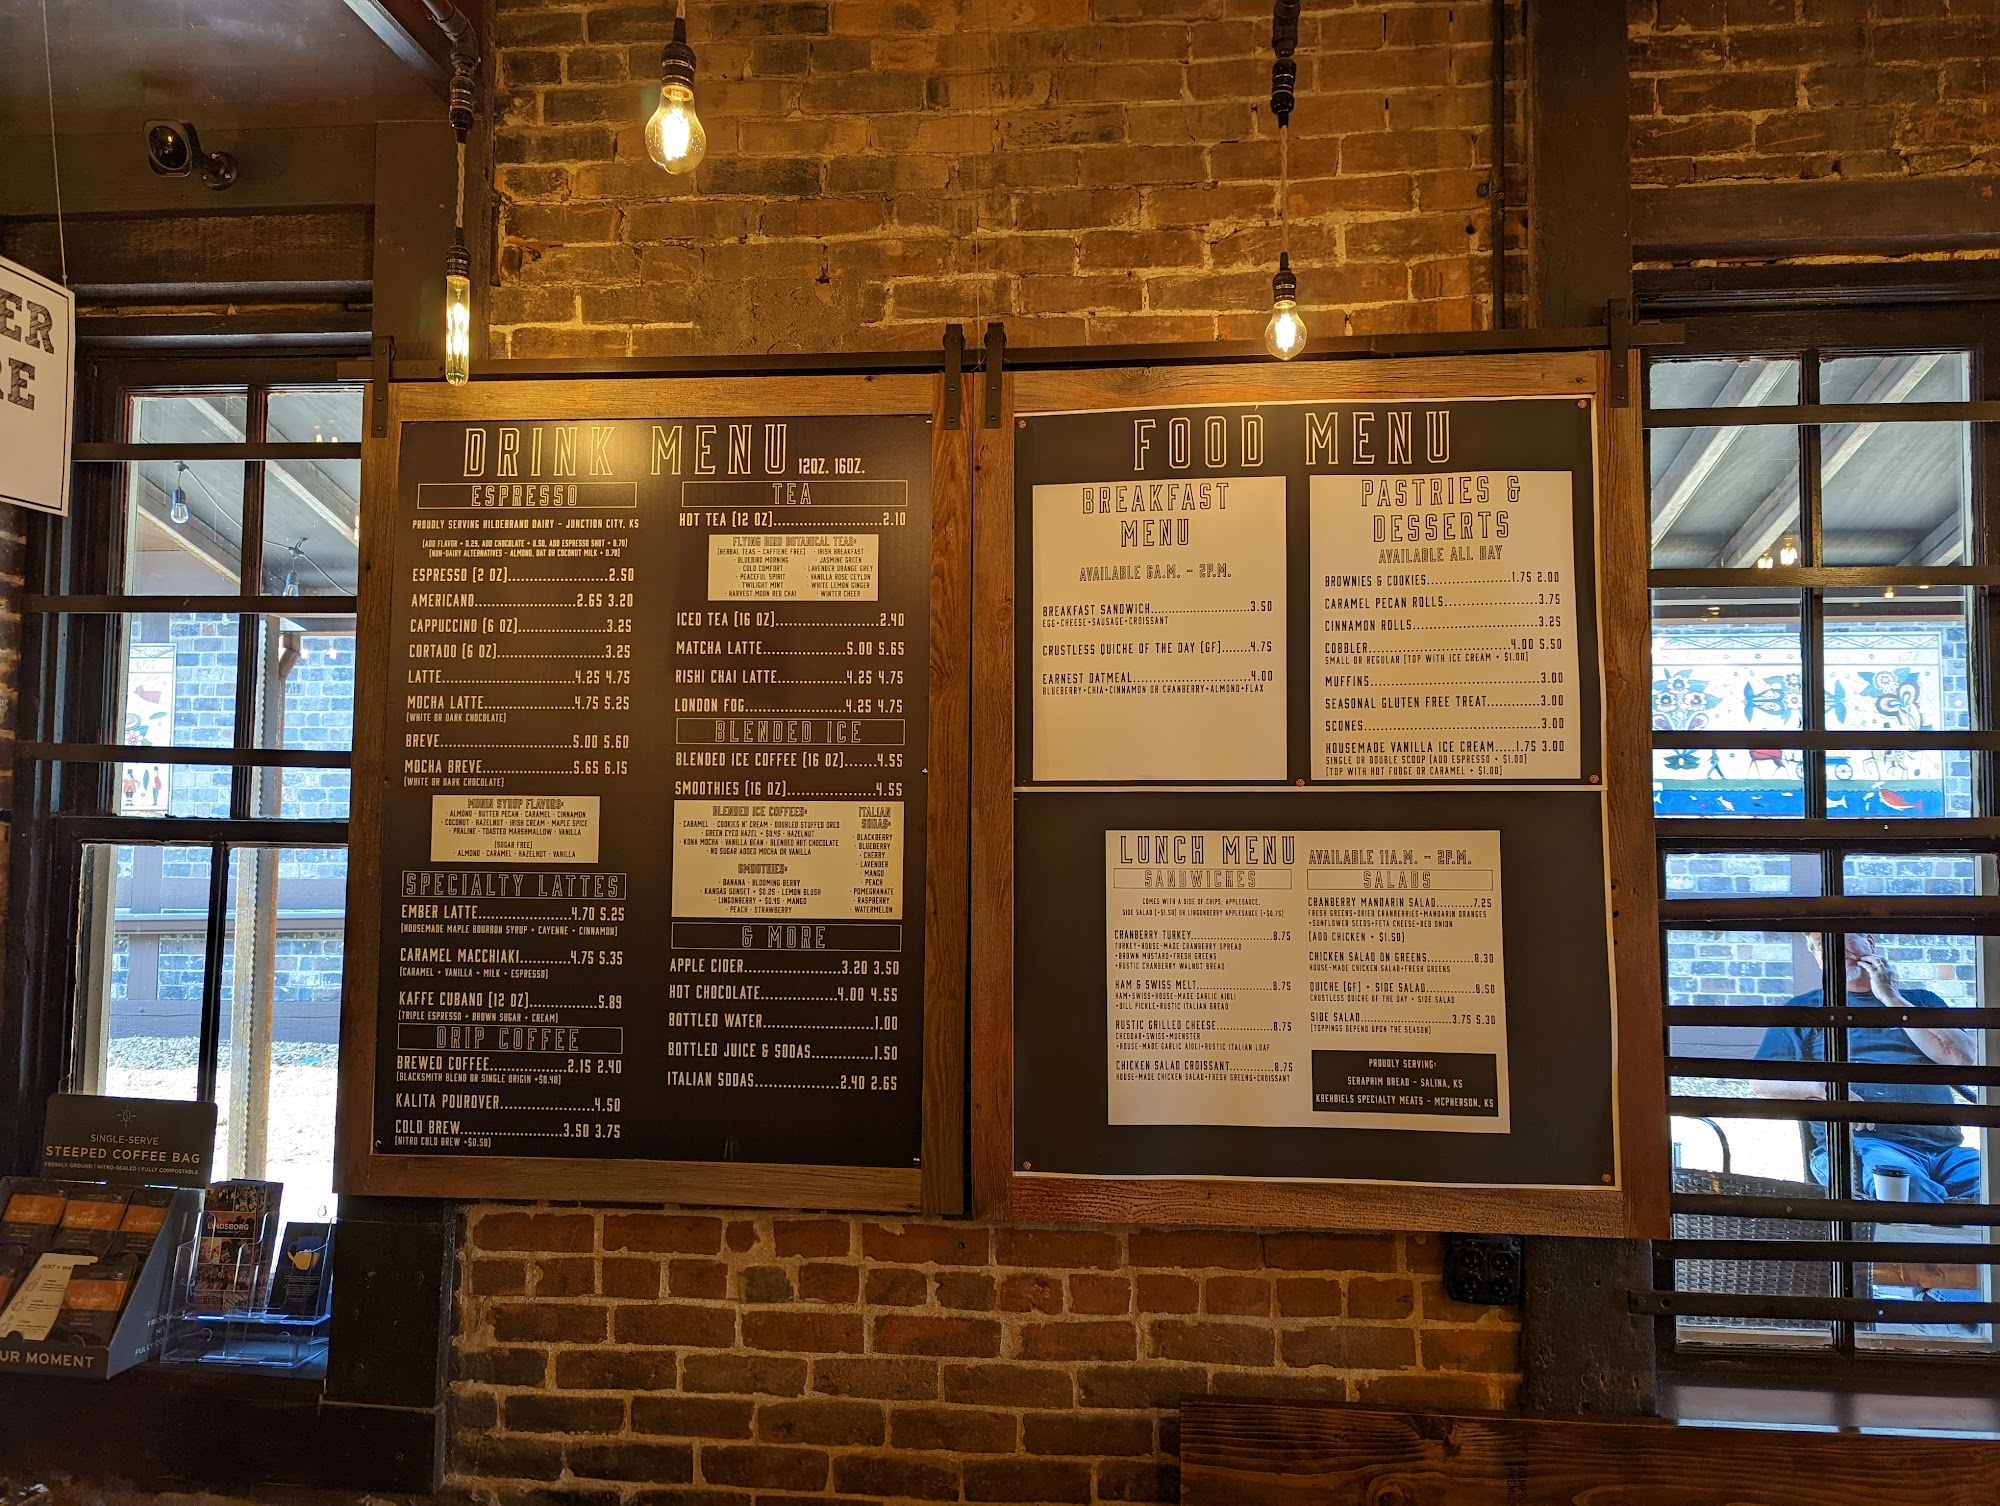 ER
RE
DRINK MENU 12OZ. 16OZ.
ESPRESSO
PROUDLY SERVING HILDEBRAND DAIRY - JUNCTION CITY, KS
(ADD FLAVOR + 0.25, ADD CHOCOLATE + 0.50, ADD ESPRESSO SHOT + 0.70)
(NON-DAIRY ALTERNATIVES - ALMOND, OAT OR COCONUT MILK + 0.70)
ESPRESSO (2 OZ)........................2.50
AMERICANO........................2.65 3.20
CAPPUCCINO (6 OZ)....................3.25
CORTADO (6 OZ)........................3.25
LATTE................................4.25 4.75
MOCHA LATTE........................4.75 5.25
(WHITE OR DARK CHOCOLATE)
BREVE................................5.00 5.60
MOCHA BREVE........................5.65 6.15
(WHITE OR DARK CHOCOLATE)
MONIN SYRUP FLAVORS:
· ALMOND · BUTTER PECAN · CARAMEL · CINNAMON
· COCONUT · HAZELNUT · IRISH CREAM · MAPLE SPICE
· PRALINE · TOASTED MARSHMALLOW · VANILLA
(SUGAR FREE)
· ALMOND · CARAMEL · HAZELNUT · VANILLA
SPECIALTY LATTES
EMBER LATTE........................4.70 5.25
(HOUSEMADE MAPLE BOURBON SYRUP + CAYENNE + CINNAMON)
CARAMEL MACCHIAKI............4.75 5.35
(CARAMEL + VANILLA + MILK + ESPRESSO)
KAFFE CUBANO (12 OZ)................5.89
(TRIPLE ESPRESSO + BROWN SUGAR + CREAM)
DRIP COFFEE
BREWED COFFEE....................2.15 2.40
(BLACKSMITH BLEND OR SINGLE ORIGIN +$0.40)
KALITA POUROVER........................4.50
COLD BREW............................3.50 3.75
(NITRO COLD BREW +$0.50)
TEA
HOT TEA (12 OZ)............................2.10
FLYING BIRD BOTANICAL TEAS:
(HERBAL TEAS - CAFFIENE FREE)
· BLUEBIRD MORNING
· COLD COMFORT
· PEACEFUL SPIRIT
· TWILIGHT MINT
· HARVEST MOON RED CHAI
· IRISH BREAKFAST
· JASMINE GREEN
· LAVENDER ORANGE GREY
· VANILLA ROSE CEYLON
· WHITE LEMON GINGER
· WINTER CHEER
ICED TEA (16 OZ)............................2.40
MATCHA LATTE........................5.00 5.65
RISHI CHAI LATTE....................4.25 4.75
LONDON FOG............................4.25 4.75
BLENDED ICE
BLENDED ICE COFFEE (16 OZ).......4.55
SMOOTHIES (16 OZ)........................4.55
BLENDED ICE COFFEES:
· CARAMEL · COOKIES N' CREAM · DOUBLED STUFFED OREO
· GREEN EYED HAZEL + $0.45 · HAZELNUT
· KONA MOCHA · VANILLA BEAN · BLENDED HOT CHOCOLATE
· NO SUGAR ADDED MOCHA OR VANILLA
SMOOTHIES:
· BANANA · BLOOMING BERRY
· KANSAS SUNSET + $0.25 · LEMON BLUSH
· LINGONBERRY + $0.45 · MANGO
· PEACH · STRAWBERRY
ITALIAN
SODAS:
· BLACKBERRY
· BLUEBERRY
· CHERRY
· LAVENDER
· MANGO
· PEACH
· POMEGRANATE
· RASPBERRY
· WATERMELON
& MORE
APPLE CIDER........................3.20 3.50
HOT CHOCOLATE....................4.00 4.55
BOTTLED WATER............................1.00
BOTTLED JUICE & SODAS................1.50
ITALIAN SODAS........................2.40 2.65
FOOD MENU
BREAKFAST
MENU
AVAILABLE 6A.M. - 2P.M.
BREAKFAST SANDWICH........................3.50
EGG+CHEESE+SAUSAGE+CROISSANT
CRUSTLESS QUICHE OF THE DAY (GF)........4.75
EARNEST OATMEAL............................4.00
BLUEBERRY+CHIA+CINNAMON OR CRANBERRY+ALMOND+FLAX
PASTRIES &
DESSERTS
AVAILABLE ALL DAY
BROWNIES & COOKIES....................1.75 2.00
CARAMEL PECAN ROLLS........................3.75
CINNAMON ROLLS................................3.25
COBBLER................................4.00 5.50
SMALL OR REGULAR (TOP WITH ICE CREAM + $1.00)
MUFFINS........................................3.00
SEASONAL GLUTEN FREE TREAT............3.00
SCONES........................................3.00
HOUSEMADE VANILLA ICE CREAM.....1.75 3.00
SINGLE OR DOUBLE SCOOP (ADD ESPRESSO + $1.00)
(TOP WITH HOT FUDGE OR CARAMEL + $1.00)
LUNCH MENU AVAILABLE 11A.M. - 2P.M.
SANDWICHES
COMES WITH A SIDE OF CHIPS, APPLESAUCE,
SIDE SALAD (+$1.50) OR LINGONBERRY APPLESAUCE (+$0.75)
CRANBERRY TURKEY........................8.75
TURKEY+HOUSE-MADE CRANBERRY SPREAD
+BROWN MUSTARD+FRESH GREENS
+RUSTIC CRANBERRY WALNUT BREAD
HAM & SWISS MELT........................8.75
HAM+SWISS+HOUSE-MADE GARLIC AIOLI
+DILL PICKLE+RUSTIC ITALIAN BREAD
RUSTIC GRILLED CHEESE................8.75
CHEDDAR+SWISS+MUENSTER
+HOUSE-MADE GARLIC AIOLI+RUSTIC ITALIAN LOAF
CHICKEN SALAD CROISSANT............8.75
HOUSE-MADE CHICKEN SALAD+FRESH GREENS+CROISSANT
SALADS
CRANBERRY MANDARIN SALAD..........7.25
FRESH GREENS+DRIED CRANBERRIES+MANDARIN ORANGES
+SUNFLOWER SEEDS+FETA CHEESE+RED ONION
(ADD CHICKEN + $1.50)
CHICKEN SALAD ON GREENS............8.30
HOUSE-MADE CHICKEN SALAD+FRESH GREENS
QUICHE (GF) + SIDE SALAD............8.50
CRUSTLESS QUICHE OF THE DAY + SIDE SALAD
SIDE SALAD........................3.75 5.30
(TOPPINGS DEPEND UPON THE SEASON)
PROUDLY SERVING:
SERAPHIM BREAD - SALINA, KS
KREHBIELS SPECIALTY MEATS - MCPHERSON, KS
SINGLE-SERVE
STEEPED COFFEE BAG
FRESHLY GROUND | NITRO-SEALED | FULLY COMPOSTABLE
UR MOMENT
LINDSBORG